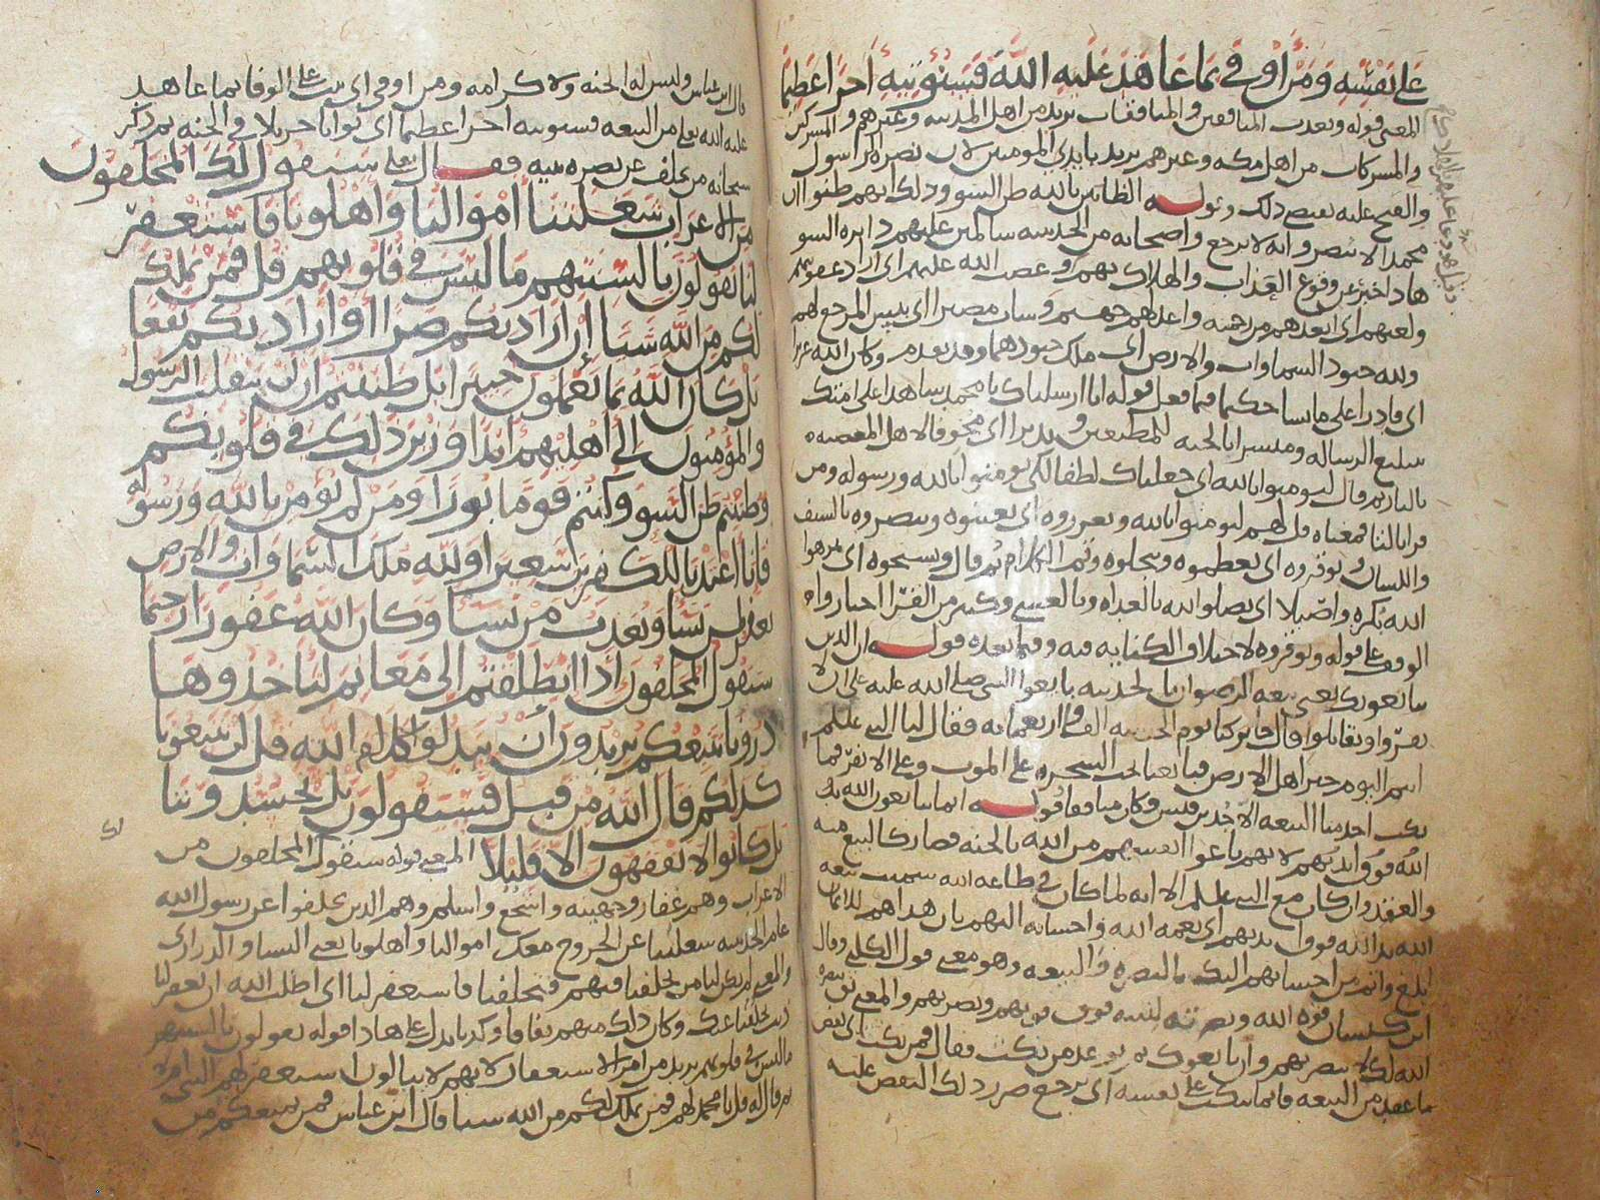 على نفسه ومن أوفى بما عاهد عليه الله فسنؤتيه أجرا عظيما
المعنى قوله ويعذب المنافقين والمنافقات يريد من اهل المدينه وغيرهم والمشركين
والمشركات من اهل مكه وغيرهم يريد بايدي المومنين لان نصره الرسول
والفتح عليه يقتضي ذلك وقوله الظانين بالله ظن السوء وذلك انهم ظنوا ان
محمدا لا ينصر وانه لا يرجع واصحابه من الحديبيه سالمين عليهم دايره السو
هاذا خبر عن وقوع العذاب والهلاك بهم وغضب الله عليهم اي اراد عقوبتهم
ولعنهم اي ابعدهم من رحمته واعد لهم جهنم وسات مصيرا اي بيس المرجع لهم
ولله جنود السماوات والارض اي ملك جنودهما وقد تقدم وكان الله عزيزا
اي قادرا على ما يشا حكيما فيما فعل قوله انا ارسلناك يا محمد شاهدا على امتك
بتبليغ الرساله ومبشرا بالجنه للمطيعين ونذيرا اي مخوفا لاهل المعصيه
بالنار ثم قال ليومنوا بالله اي جعلناك لطفا لكي يومنوا بالله ورسوله ومن
قرا بالتا فمعناه قل لهم لتومنوا بالله وتعزروه اي تعينوه وتنصروه بالسيف
واللسان وتوقروه اي تعظموه وتبجلوه وتم الكلام ثم قال وتسبحوه اي تنزهوا
الله بكره واصيلا اي تصلوا لله بالغداه وبالعشي وكثير من القرا اختاروا
الوقف على قوله وتوقروه لاختلاف الكنايه فيه وفيما بعده قوله ان الذين
يبايعونك يعني بيعه الرضوان بالحديبيه بايعوا النبي صلى الله عليه على ان لا
يفروا ويقاتلوا قال جابر كنا يوم الحديبيه الف واربعمايه فقال لنا النبي عليلم
انتم اليوم خير اهل الارض فبايعنا تحت الشجره على الموت وعلى الا نفر فما
نكث احد منا البيعه الا جد بن قيس وكان منافقا قوله انما يبايعون الله يد
الله فوق ايديهم لانهم باعوا انفسهم من الله بالجنه فصار كالبيع منه
والعقد وان كان مع النبي عليلم الا انه لما كان في طاعه الله سميت بيعه
الله يد الله فوق ايديهم اي نعمه الله واحسانه اليهم بان هداهم للايمان
ابلغ واتم من احسانهم اليك بالنصره والبيعه وهو معنى قول الكلبي وقال
ابن كيسان قوه الله ونصرته لنبيه فوق قوتهم ونصرتهم والمعنى ثق بنصره
الله لك لا بنصرتهم وان بايعوك ثم توعد من نكث فقال فمن نكث اي نقض
ما عقد من البيعه فانما ينكث على نفسه اي يرجع ضرر ذلك النقض عليه
قال ابن عباس وليس له الجنه ولا كرامه ومن اوفى اي ثبت على الوفا بما عاهد
عليه الله يعني من البيعه فسنوتيه اجرا عظيما اي ثوابا جزيلا في الجنه ثم ذكر
سبحانه من تخلف عن نصره نبيه فقال تعلى سيقول لك المخلفون
من الاعراب شغلتنا أموالنا وأهلونا فاستغفر
لنا يقولون بالسنتهم ما ليس في قلوبهم قل فمن يملك
لكم من الله شيئا إن اراد بكم ضرا او اراد بكم نفعا
بل كان الله بما تعملون خبيرا بل ظننتم ان لن ينقلب الرسول
والمؤمنون إلى أهليهم ابدا وزين ذلك في قلوبكم
وظننتم ظن السوء وكنتم قوما بورا ومن لم يؤمن بالله ورسوله
فإنا اعتدنا للكفرين سعيرا ولله ملك السماوات والارض
يغفر لمن يشا ويعذب من يشا وكان الله غفورا رحيما
سيقول المخلفون اذا انطلقتم الى مغانم لتاخذوها
ذرونا نتبعكم يريدون أن يبدلوا كلام الله قل لن تتبعونا
كذلكم قال الله من قبل فسيقولون بل تحسدوننا
بل كانوا لا يفقهون الا قليلا المعنى قوله سيقول المخلفون من
الاعراب وهم غفار وجهينه واشجع واسلم وهم الذين تخلفوا عن رسول الله
عام الحديبيه شغلتنا عن الخروج معك اموالنا واهلونا يعني النسا والذراري
والمعنى لم يكن لنا من يخلفنا فيهم فتخلفنا فاستغفر لنا اي اطلب الله ان يغفر لنا
تخلفنا عنك وكان ذلك منهم نفاقا وكذبا يدل على هاذا قوله يقولون بالسنتهم
ما ليس في قلوبهم يريد من امر الاستغفار لانهم لا يبالون استغفر لهم النبي ام لا
ثم قال له قل يا محمد لهم فمن يملك لكم من الله شيا قال ابن عباس فمن يمنعكم من